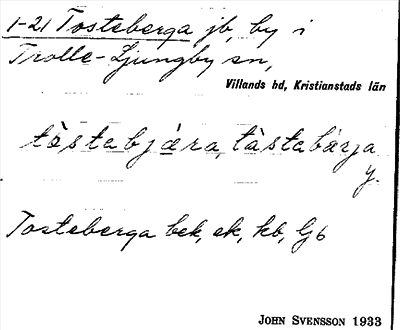 1-21 Tosteberga jb, by i
Trolle-Ljungby sn,
Villands hd, Kristianstads län
tòstabjæra, tàstabárja
y.
Tosteberga bek, ek, kb, Gb
JOHN SVENSSON 1933